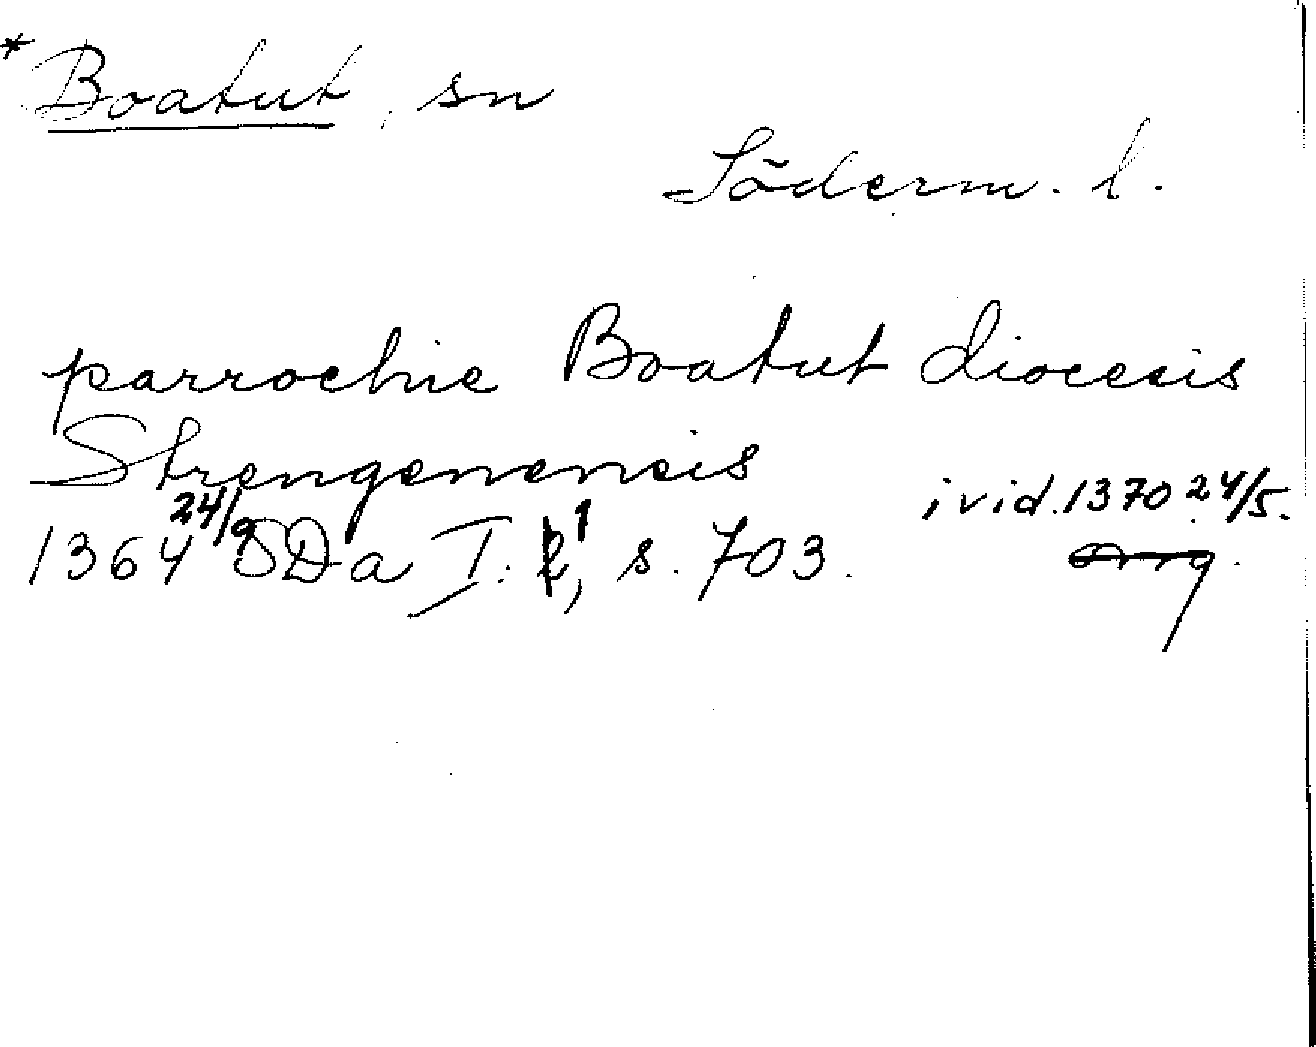 * Boatut, sn
Söderm. l.
parrochie Boatut diocesis
Strengenensis
i vid. 1370 24/5.
1364 24/9 SDa I: 1, s. 703. orig.